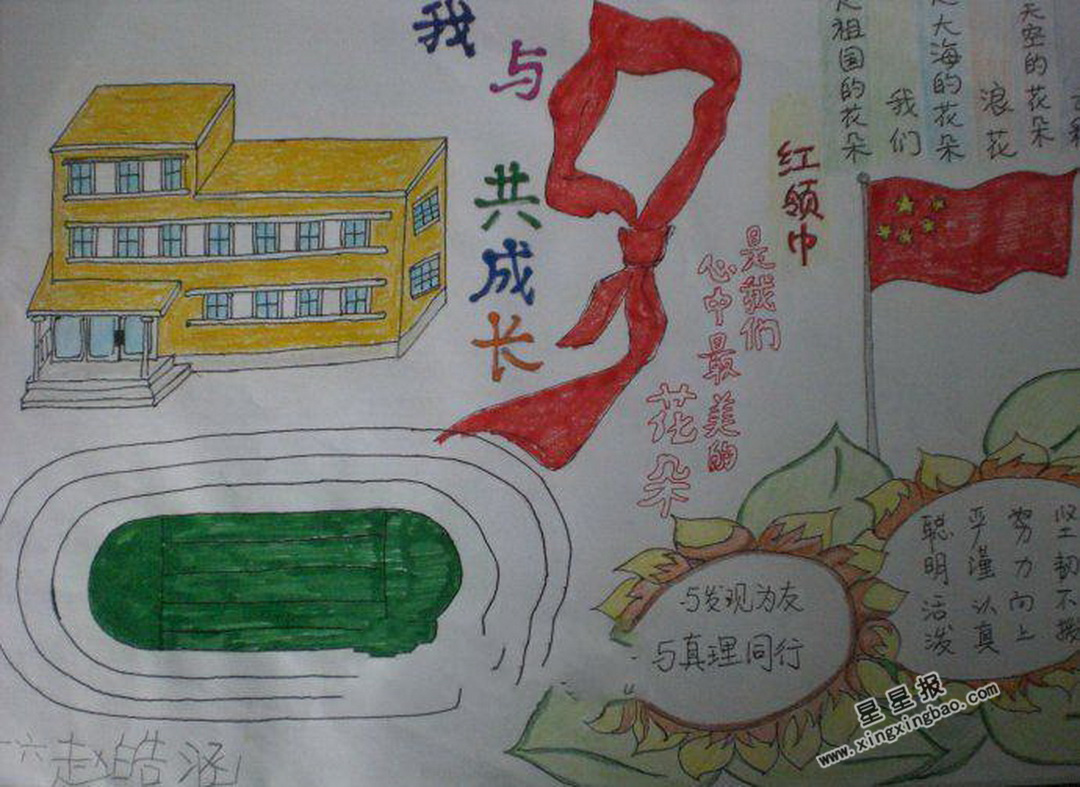 我与
共成长
红领巾
是我们
心中最美的
花朵
天空的花朵
浪花
大海的花朵
我们
祖国的花朵
与发现为友
与真理同行
坚韧不拔
努力向上
严谨认真
聪明活泼
赵皓涵
星星报
www.xingxingbao.com